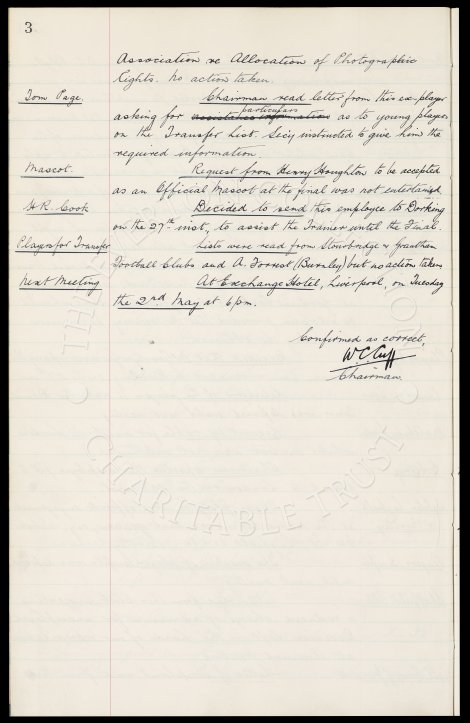 3
Association re Allocation of Photographic
Rights. No action taken.
Tom Page. Chairman read letter from this ex-player
particulars
asking for assistance information as to young players
on the Transfer List. Secy instructed to give him the
required information
Mascot. Request from Henry Houghton to be accepted
as an Official Mascot at the final was not entertained.
H.R. Cook Decided to send this employee to Dorking
on the 27th inst, to assist the Trainer until the Final.
Players for Transfer Lists were read from Stourbridge & Grantham
Football Clubs and A. Forrest (Burnley) but no action taken
Next Meeting At Exchange Hotel, Liverpool, on Tuesday
the 2nd May at 6pm.
Confirmed as correct,
W.C. Cuff
Chairman.
CHARITABLE TRUST